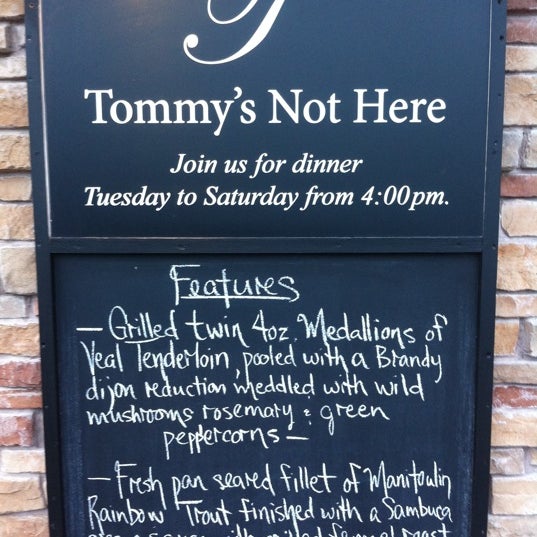 T
Tommy's Not Here
Join us for dinner
Tuesday to Saturday from 4:00pm.
Features
— Grilled twin 4oz. Medallions of
Veal Tenderloin, pooled with a Brandy
dijon reduction meddled with wild
mushrooms rosemary & green
peppercorns —
— Fresh pan seared fillet of Manitoulin
Rainbow Trout finished with a Sambuca